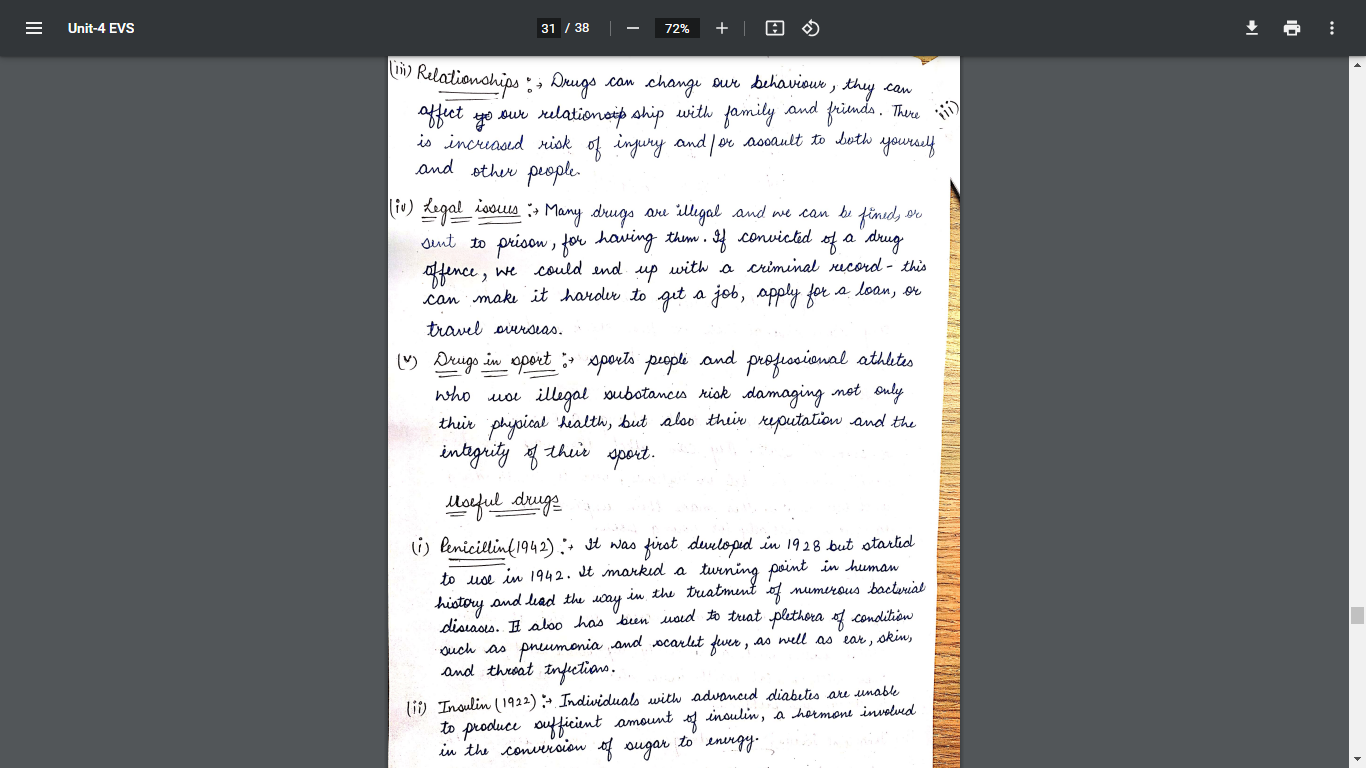 Unit-4 EVS
31 / 38
72%
(iii) Relationships :→ Drugs can change our behaviour, they can
affect our relationship with family and friends. There
iii)
is increased risk of injury and/or assault to both yourself
and other people.
(iv) Legal issues :→ Many drugs are illegal and we can be fined, or
sent to prison, for having them. If convicted of a drug
offence, we could end up with a criminal record - this
can make it harder to get a job, apply for a loan, or
travel overseas.
(v) Drugs in sport :→ sports people and professional athletes
who use illegal substances risk damaging not only
their physical health, but also their reputation and the
integrity of their sport.
Useful drugs
(i) Penicillin (1942) :→ It was first developed in 1928 but started
to use in 1942. It marked a turning point in human
history and lead the way in the treatment of numerous bacterial
diseases. It also has been used to treat plethora of condition
such as pneumonia and scarlet fever, as well as ear, skin,
and throat infections.
(ii) Insulin (1922) :→ Individuals with advanced diabetes are unable
to produce sufficient amount of insulin, a hormone involved
in the conversion of sugar to energy.